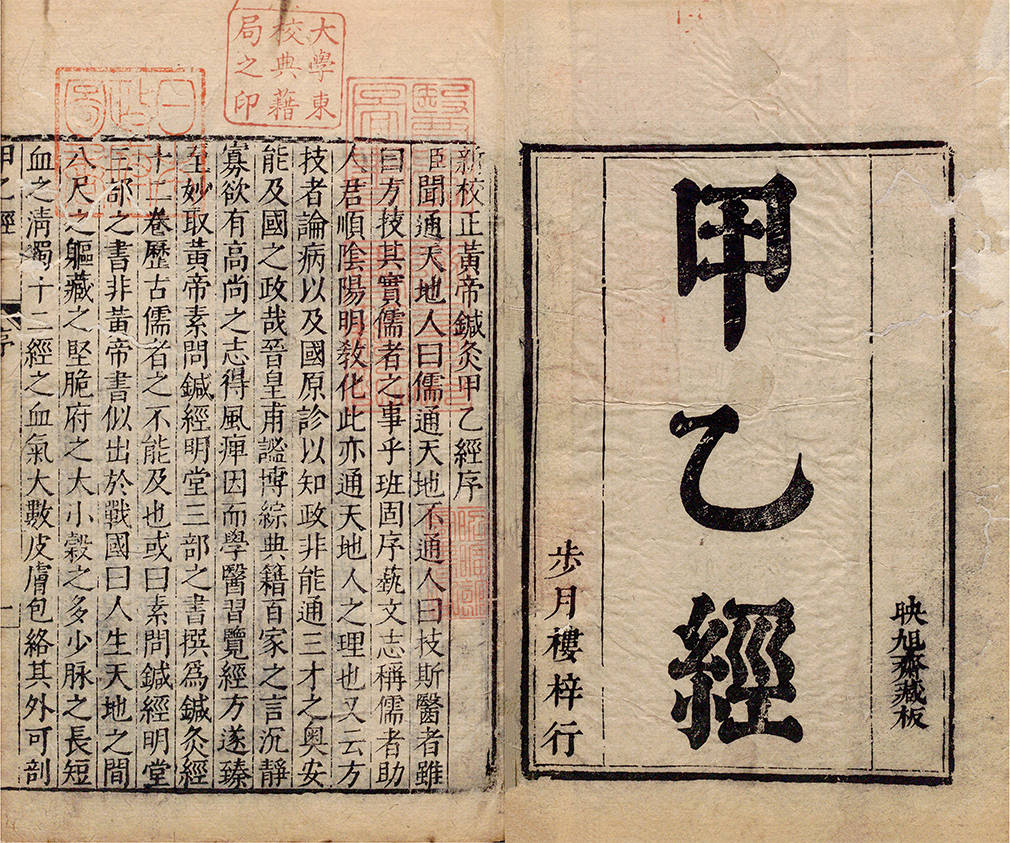 映旭齋藏板
甲乙經
步月樓梓行
新校正黃帝鍼灸甲乙經序
臣聞通天地人曰儒通天地不通人曰技斯醫者雖
曰方技其實儒者之事乎班固序藝文志稱儒者助
人君順陰陽明教化此亦通天地人之理也又云方
技者論病以及國原診以知政非能通三才之奧安
能及國之政哉晉皇甫謐博綜典籍百家之言沉靜
寡欲有高尚之志得風痺因而學醫習覽經方遂臻
至妙取黃帝素問鍼經明堂三部之書撰爲鍼灸經
十二卷歷古儒者之不能及也或曰素問鍼經明堂
三部之書非黃帝書似出於戰國曰人生天地之間
八尺之軀藏之堅脆府之大小穀之多少脉之長短
血之淸濁十二經之血氣大數皮膚包絡其外可剖
甲乙經
序
一
大學東
校典藉
局之印